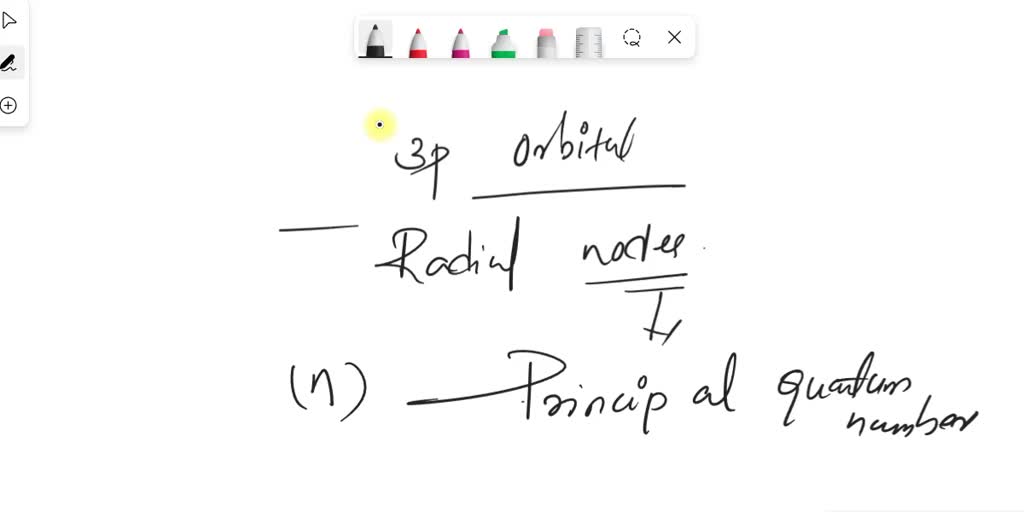 3p orbital
Radial nodes
(n) — Principal quantum
number